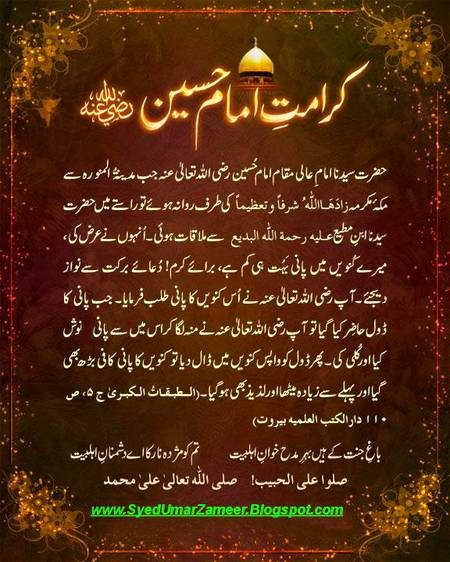 کرامتِ امام حسین رضی اللہ عنہ
حضرت سیدنا امام عالی مقام امام حُسین رضی اللہ تعالیٰ عنہ جب مدینۃُ المنورہ سے
مکہ مکرمہ زادَھَا اللہُ شرفاً و تعظیماً کی طرف روانہ ہوئے تو راستے میں حضرت
سیدنا ابن مطیع علیہ رحمۃ اللہ البدیع سے ملاقات ہوئی۔ اُنہوں نے عرض کی،
میرے کُنویں میں پانی بَہُت ہی کم ہے، برائے کرم! دُعائے برکت سے نواز
دیجئے۔ آپ رضی اللہ تعالیٰ عنہ نے اُس کنویں کا پانی طلب فرمایا۔ جب پانی کا
ڈول حاضِر کیا گیا تو آپ رضی اللہ تعالیٰ عنہ نے منہ لگا کر اس میں سے پانی نوش
کیا اور کُلی کی۔ پھر ڈول کو واپس کنویں میں ڈال دیا تو کنویں کا پانی کافی بڑھ بھی
گیا اور پہلے سے زیادہ میٹھا اور لذیذ بھی ہو گیا۔ (الطبقاتُ الکبریٰ ج ۵، ص
۱۱۰ دارالکتب العلمیہ بیروت)
باغ جنت کے ہیں بہرِ مدح خوانِ اہلبیت تم کو مژدہ نار کا اے دشمنانِ اہلبیت
صلوا علی الحبیب! صلی اللہ تعالیٰ علیٰ محمد
www.SyedUmarZameer.Blogspot.com